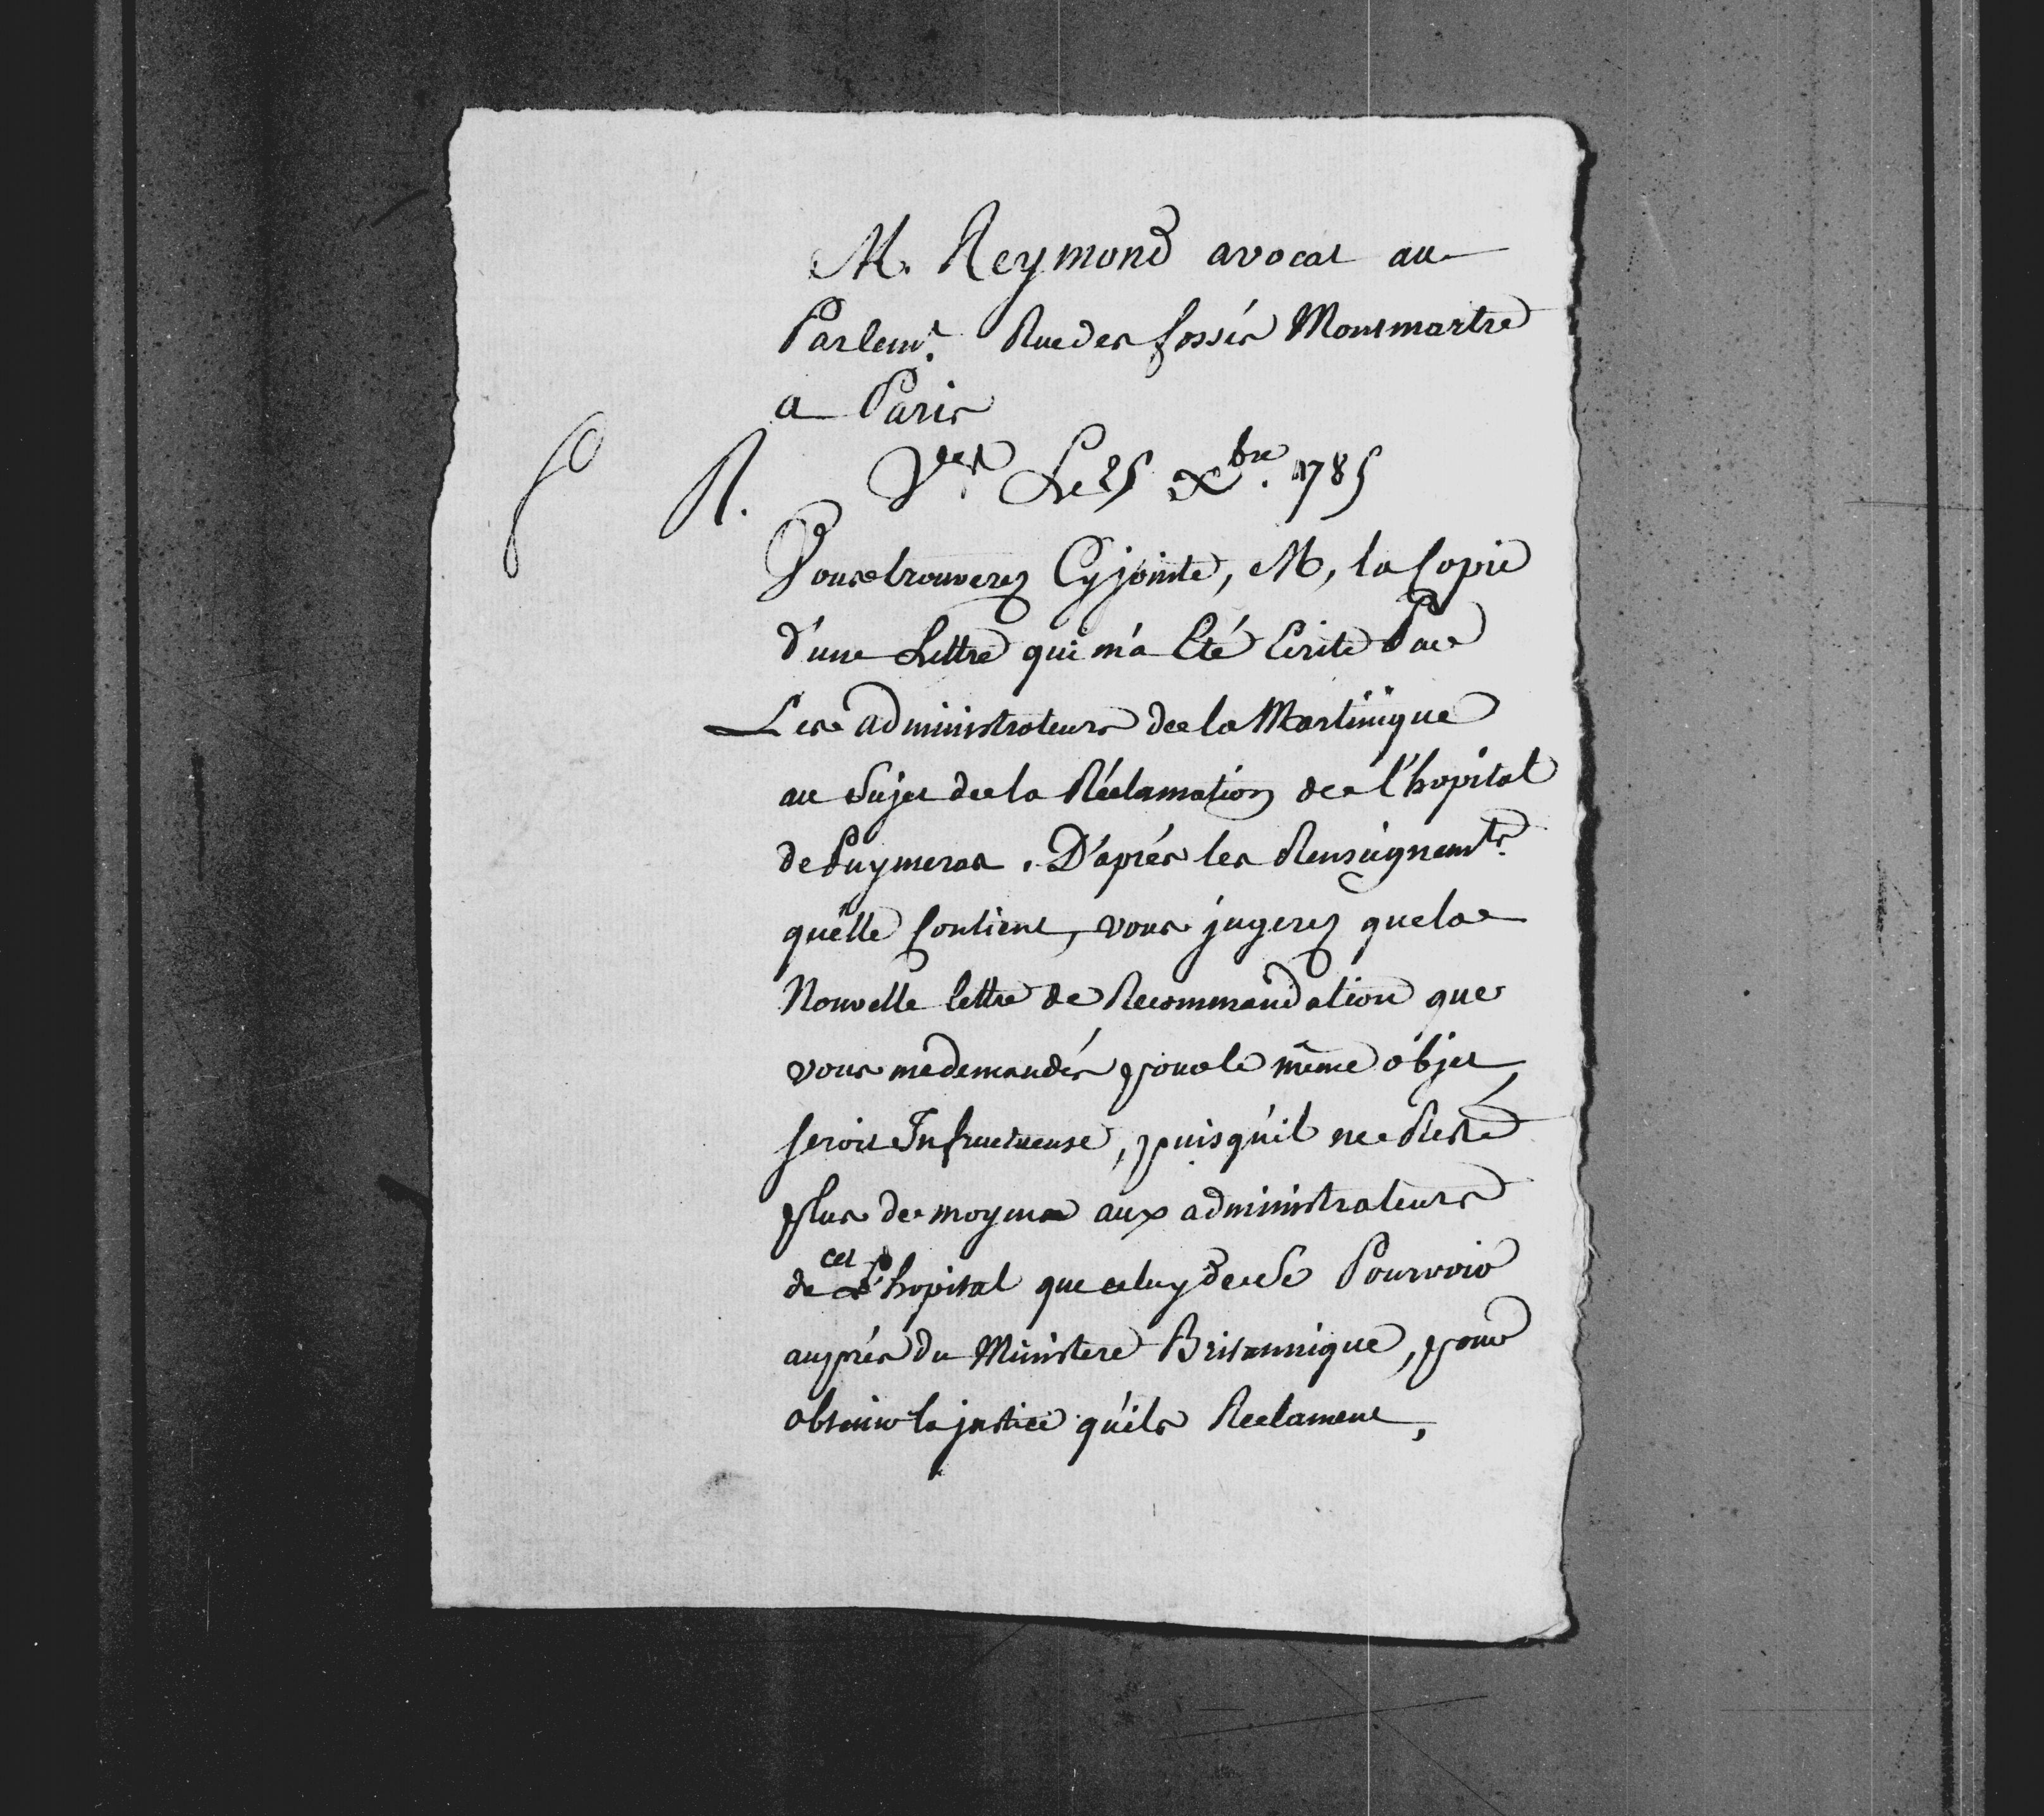 M. Reymond avocat au
Parlem.t Rue des fossés Montmartre
a Paris
R. V.les Le 25 X.bre 1785
Vous trouverez Cy jointe, M, la Copie
d'une Lettre qui m'a Eté Ecrite Par
Les administrateurs de la Martinique
au Sujet de la Réclamation de l'hopital
de Puymeras. D'aprés les Renseignem.ts
qu'elle Contient, vous jugerez que la
Nouvelle lettre de Recommandation que
vous me demandés pour le même objet,
seroit Infructueuse, puisqu'il ne Reste
plus de moyens aux administrateurs
de cet hopital que celuy de Se Pourvoir
auprés du Ministere Britannique, pour
obtenir la justice qu'ils Reclament,